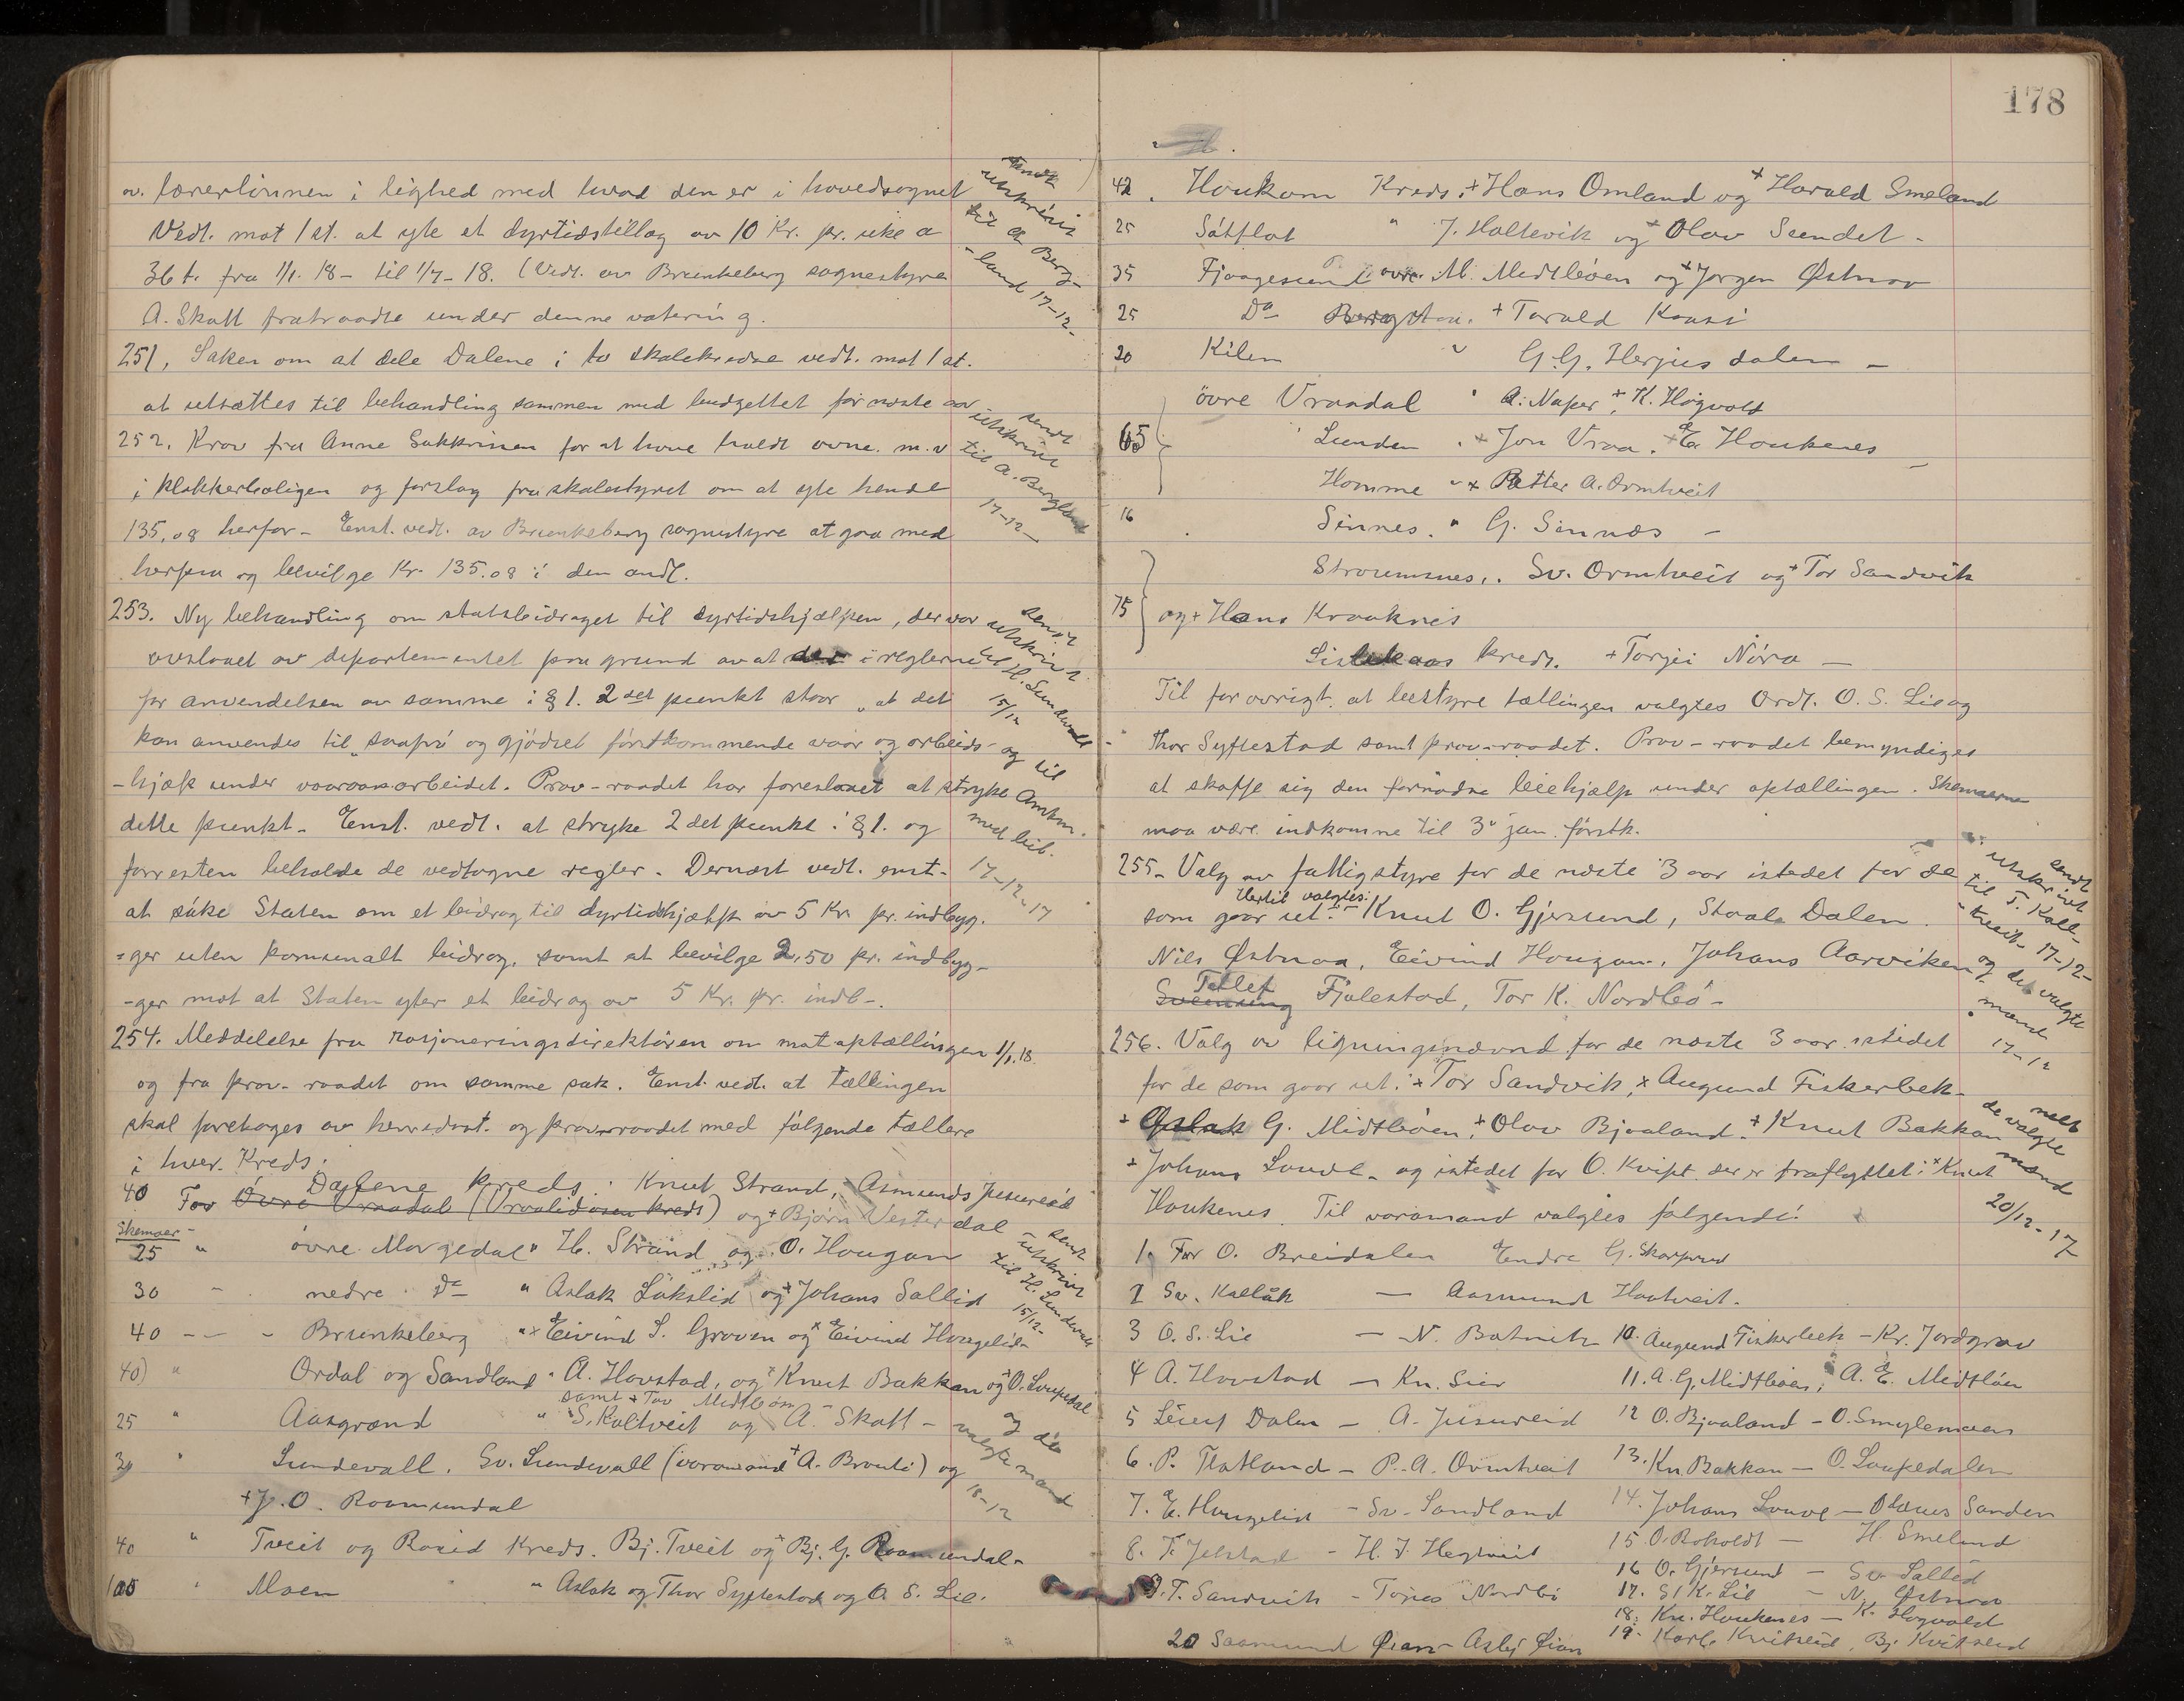 av. lærerinnen i lighed med hvad den er i hovedsognet
Vedt. mot 1 st. at yte et dyrtidstillæg av 10 Kr. pr. uke a
36 t. fra 1/1. 18 - til 1/7 - 18. (Vedt. av Brunkeberg sognestyre
A. Skatt fratraadte under denne votering.
sendt
utskrivt
til A. Berg-
-land 17-12-
251. Saken om at dele Dalene i to skolekredse vedt. mot 1 st.
at utsættes til behandling sammen med budgettet for næste aar
252. Krav fra Anne Sukkrinen for at have holdt ovne. m.v
i klokkerboligen og forslag fra skolestyret om at yte hende
135,08 herfor - Enst. vedt. av Brunkeberg sognestyre at gaa med
herpaa og bevilge Kr. 135.08 i den anl.
sendt
utskrivt
til A. Bergland
17-12-
253. Ny behandling om statsbidraget til dyrtidshjælpen, der var
avslaaet av departementet paa grund av at det i reglerne
for anvendelsen av samme i § 1. 2det punkt staar „at det
kan anvendes til „saafrø og gjødsel førstkommende vaar og arbeids-
-hjælp under vaaronnarbeidet. Prov-raadet har foreslaaet at stryke
dette punkt - Enst. vedt. at stryke 2det punkt i § 1. og
forresten beholde de vedtagne regler. Dernæst vedt. enst-
at søke Staten om et bidrag til dyrtidshjælp av 5 Kr. pr. indbyg-
-ger uten komunalt bidrag, samt at bevilge 2,50 pr. indbyg-
-ger mot at Staten yter et bidrag av 5 Kr. pr. indb-.
sendt
utskrivt
til H. Sundevall
15/12
og til
Amtm.
med bil.
17-12-17
254. Meddelelse fra rasjoneringsdirektøren om matoptællingen 1/1. 18.
og fra prov-raadet om samme sak. Enst. vedt. at tællingen
skal foretages av herredsst. og provraadet med følgende tællere
i hver Kreds:
40 For Øvre Vraadal (Vraaliosen kreds) Dalene kreds: Knut Strand, Asmund Jusureid og + Bjørn Vesterdal
Skemaer
25 " øvre Morgedal " H. Strand og O. Hougan
30 - nedre Do " Aslak Lükslid og + Johans Sallid
40 - - - Brunkeberg " + Eivind S. Groven og + Eivind Hougelid
40) " Ordal og Sandland " A. Hovstad, og + Knut Bakkan og O. Loupedal
samt + Tov Midtbøen
25 " Aasgrænd " S. Kaltveit og A. Skatt -
30 " Lundevall. Sv. Lundevall (varamand + A. Brauti) og
+ J. O. Raamundal
40 " Tveit og Roaid Kreds. Bj. Tveit og + Bj. G. Raamundal -
105 " Moen " Aslak og Thor Syftestad og O. S. Lie.
sendt
utskrivt
til H. Lundevall
15/12-
og de
valgte mænd
18-12
178
42. Houkom Kreds. + Hans Omland og + Harald Smeland
25 Såtflat " J. Haltevik og + Olav Sundet -
35 Fjaagesund øvre. M. Midtbøen og + Jørgen Østnaa
25 Do + Tarald Kaasi
20 Kilen " G. G. Herjusdalen -
65 { øvre Vraadal " A. Naper + K. Høgvold
Lunden . + Jon Vraa. + E. Houkenes -
Homme " + Petter A. Ormtveit
16 Sinnes. " G. Sinnæs -
75 { Straumnes,. Sv. Ormtveit og + Tor Sandvik
og + Hans Kraaknes
kreds. + Torjei Nöra -
Til forøvrigt at bestyre tællingen valgtes Ordf. O. S. Lie og
Thor Syftestad samt prov-raadet. Prov-raadet bemyndiges
at skaffe sig den fornødne leiehjælp under optællingen. Skemaerne
maa være indkomne til 3. jan. førstk.
255. Valg av fattigstyre for de næste 3 aar istedet for de
som gaar ut. Hertil valgtes: Knut O. Gjersund, Staale Dalen
Nils Østnaa, Eivind Hougan, Johans Aarviken,
Svenning Tellef Fjalestad, Tor K. Nordbø -
sendt
utskrivt
til T. Kall-
-tveit 17-12-
og de valgte
mænd
17-12
256. Valg av ligningsnævnd for de næste 3 aar istedet
for de som gaar ut. + Tor Sandvik, + Augund Fiskerbek -
+ Aslak G. Midtbøen, + Olav Bjaaland. + Knut Bakkan
+ Johans Louve - og istedet for O. Kvipt der er fraflyttet: + Knut
Houkenes. Til varamænd valgtes følgende:
melt
de valgte
mænd
20/12-17
1. For O. Breidalen Endre G. Skarprud
2 Sv. Kallåk - Aasmund Haatveit.
3 O. S. Lie - N. Batnich
4 A. Hovstad - Kn. Sier
5 Leiuf Dalen - A. Jusureid
6. P. Flatland - P. A. Ormtveit
7. E. Hougelid - Sv. Sandland
8. T. Jelstad - H. J. Hegtveit
9. T. Sandvik - Tønes Nordbö
10. Augund Fiskerbek - Kr. Jordgrav
11. A. G. Midtbøen, A. E. Midtbøen
12 O. Bjaaland - O. Smylemoen
13. Kn. Bakkan - O. Loupedalen
14. Johans Louve - Olaus Sanden
15 O. Roholdt - H. Smeland
16 O. Gjersund - Sv. Sallid
17. Sl. K. Lie - N. Østnaa
18. Kn. Houkenes - K. Høgvold
19. Karl Kvitseid, Bj. Kvitseid
20 Saamund Øian - Aslej Øian